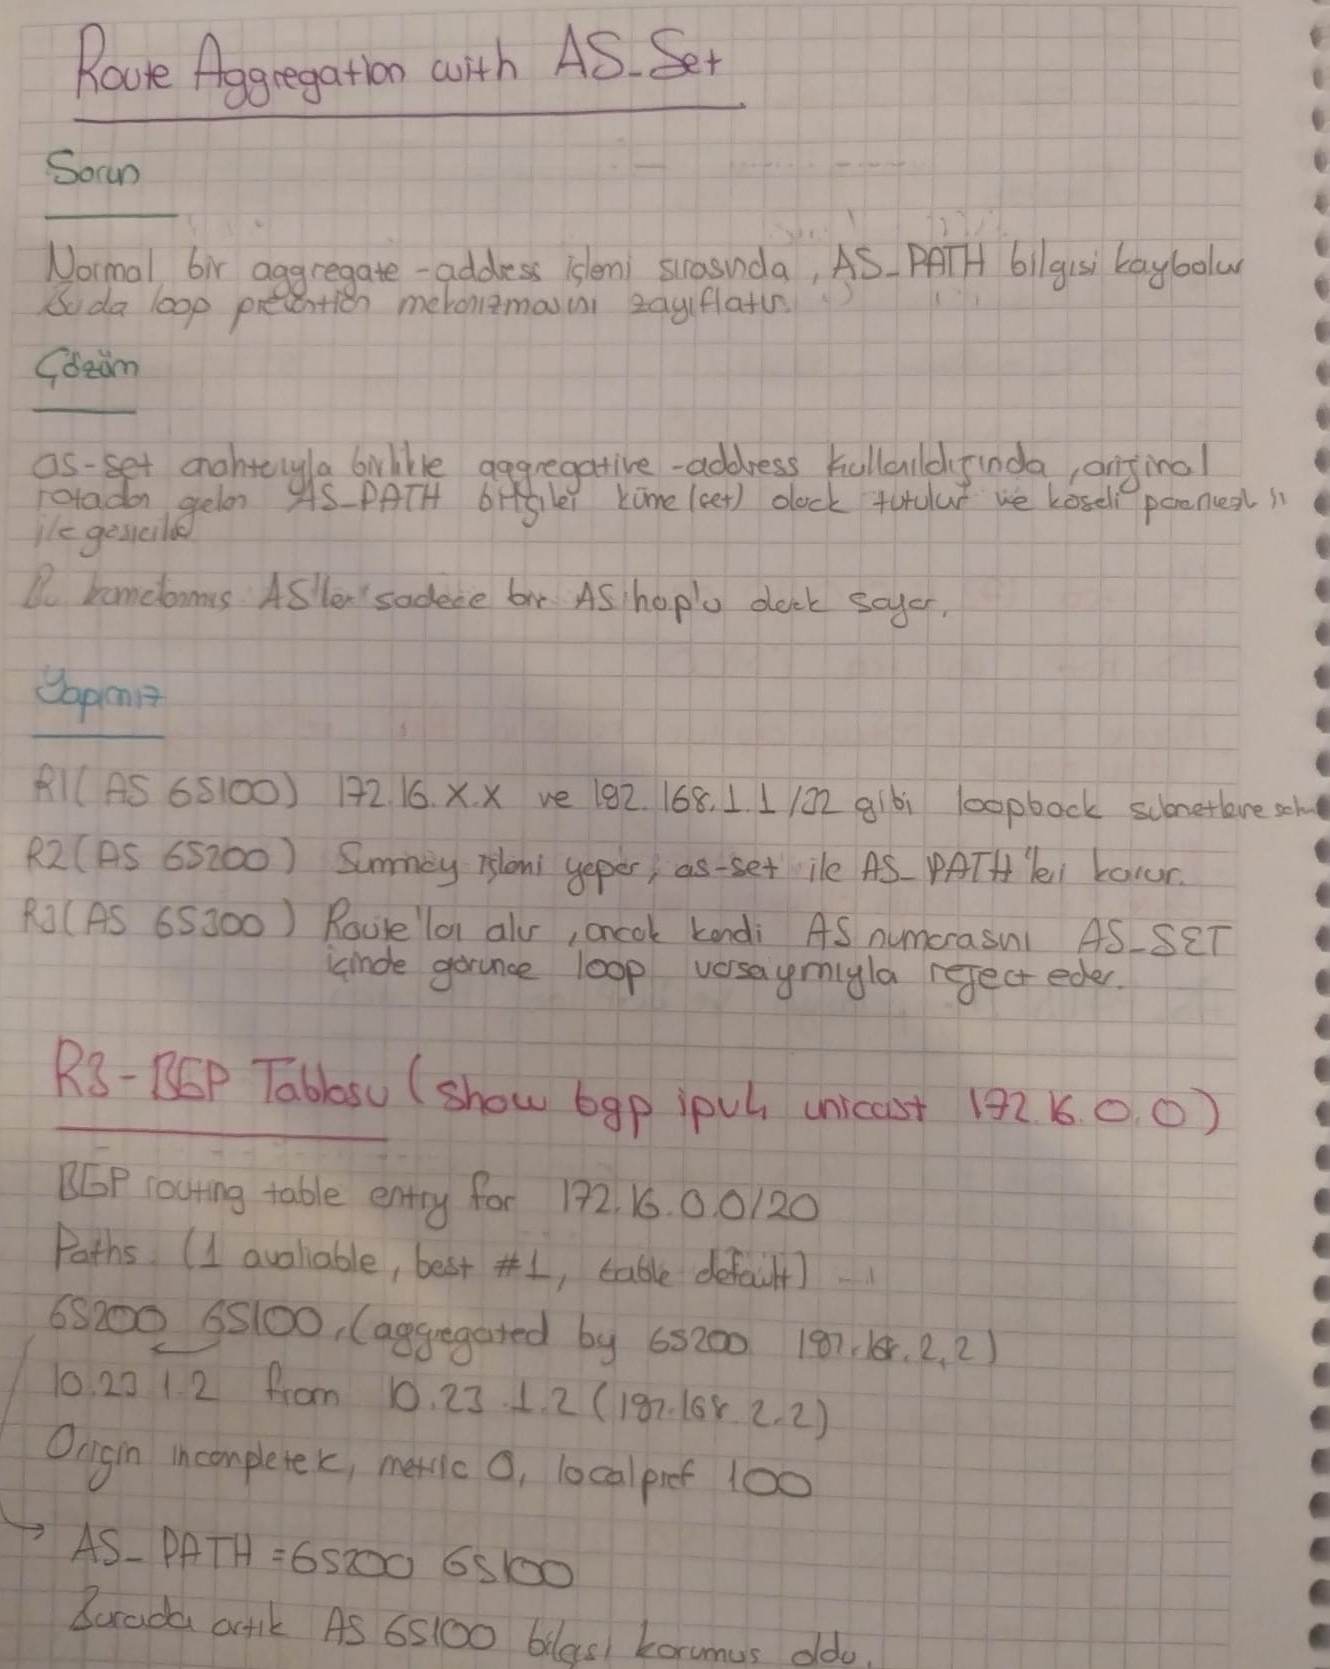 Route Aggregation with AS_Set
Sorun
Normal bir aggregate-address işlemi sırasında, AS_PATH bilgisi kaybolur
Bu da loop prevention mekanizmasını zayıflatır.
Çözüm
as-set anahtarıyla birlikte aggregative-address kullanıldığında, orijinal
rotadan gelen AS_PATH bilgileri küme (set) olarak tutulur ve köseli parentezl
ile
Bu AS'ler sadece bir AS hop'u olarak sayar.
Yapımız
R1(AS 65100) 172.16.X.X ve 192.168.1.1/32 gibi loopback subnetlere
R2(AS 65200) Summary işlemi yapar, as-set ile AS_PATH'leri korur.
R3(AS 65300) Route'ları alır, ancak kendi AS numarasını AS_SET
içinde görünce loop varsayımıyla reject eder.
R3-BGP Tablosu (show bgp ipv4 unicast 172.16.0.0)
BGP routing table entry for 172.16.0.0/20
Paths. (1 avaliable, best #1, table default)
65200 65100, (aggregated by 65200 192.168.2.2)
10.23.1.2 from 10.23.1.2 (192.168.2.2)
Origin incomplete, metric 0, localpref 100
→ AS_PATH = 65200 65100
Burada artık AS 65100 bilgisi korumus oldu.